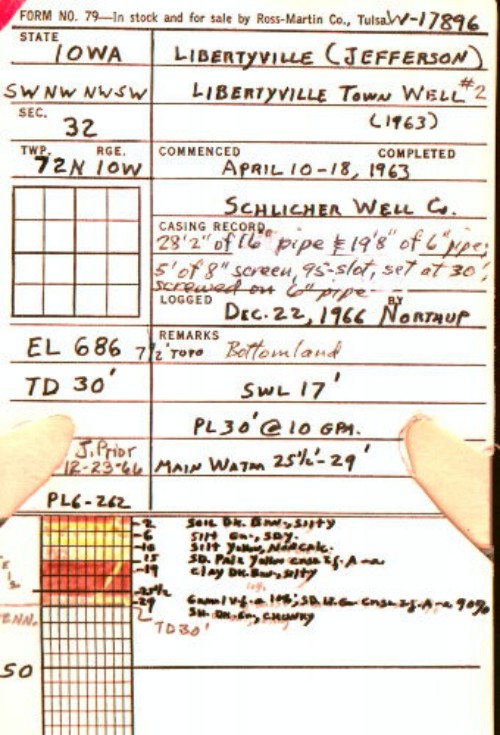 FORM NO. 79—In stock and for sale by Ross-Martin Co., Tulsa W-17896
STATE
IOWA
LIBERTYVILLE (JEFFERSON)
SWNW NWSW
LIBERTYVILLE TOWN WELL #2
SEC.
32
(1963)
TWP. RGE.
72N 10W
COMMENCED COMPLETED
APRIL 10-18, 1963
SCHLICHER WELL CO.
CASING RECORD
28'2" of 16" pipe & 19'8" of 6" pipe;
5' of 8" screen, 95-slot, set at 30',
screwed on 6" pipe
LOGGED BY
DEC. 22, 1966 NORTHUP
EL 686 7 1/2' TOPO
REMARKS
Bottomland
TD 30'
SWL 17'
PL 30' @ 10 GPM.
J. Prior
12-23-66
MAIN WATER 25½'-29'
PL6-262
-2 SOIL DK. BRN., SILTY
-6 SILT GN., SDY.
-10 SILT YELLOW, NONCALC.
-15 SD. PALE YELLOW CRSE
-19 CLAY DK. BRN., SILTY
-25½
-29 10%; SD. CRSE 90%
SH. DK. GN., CHUNKY
TD 30'
50